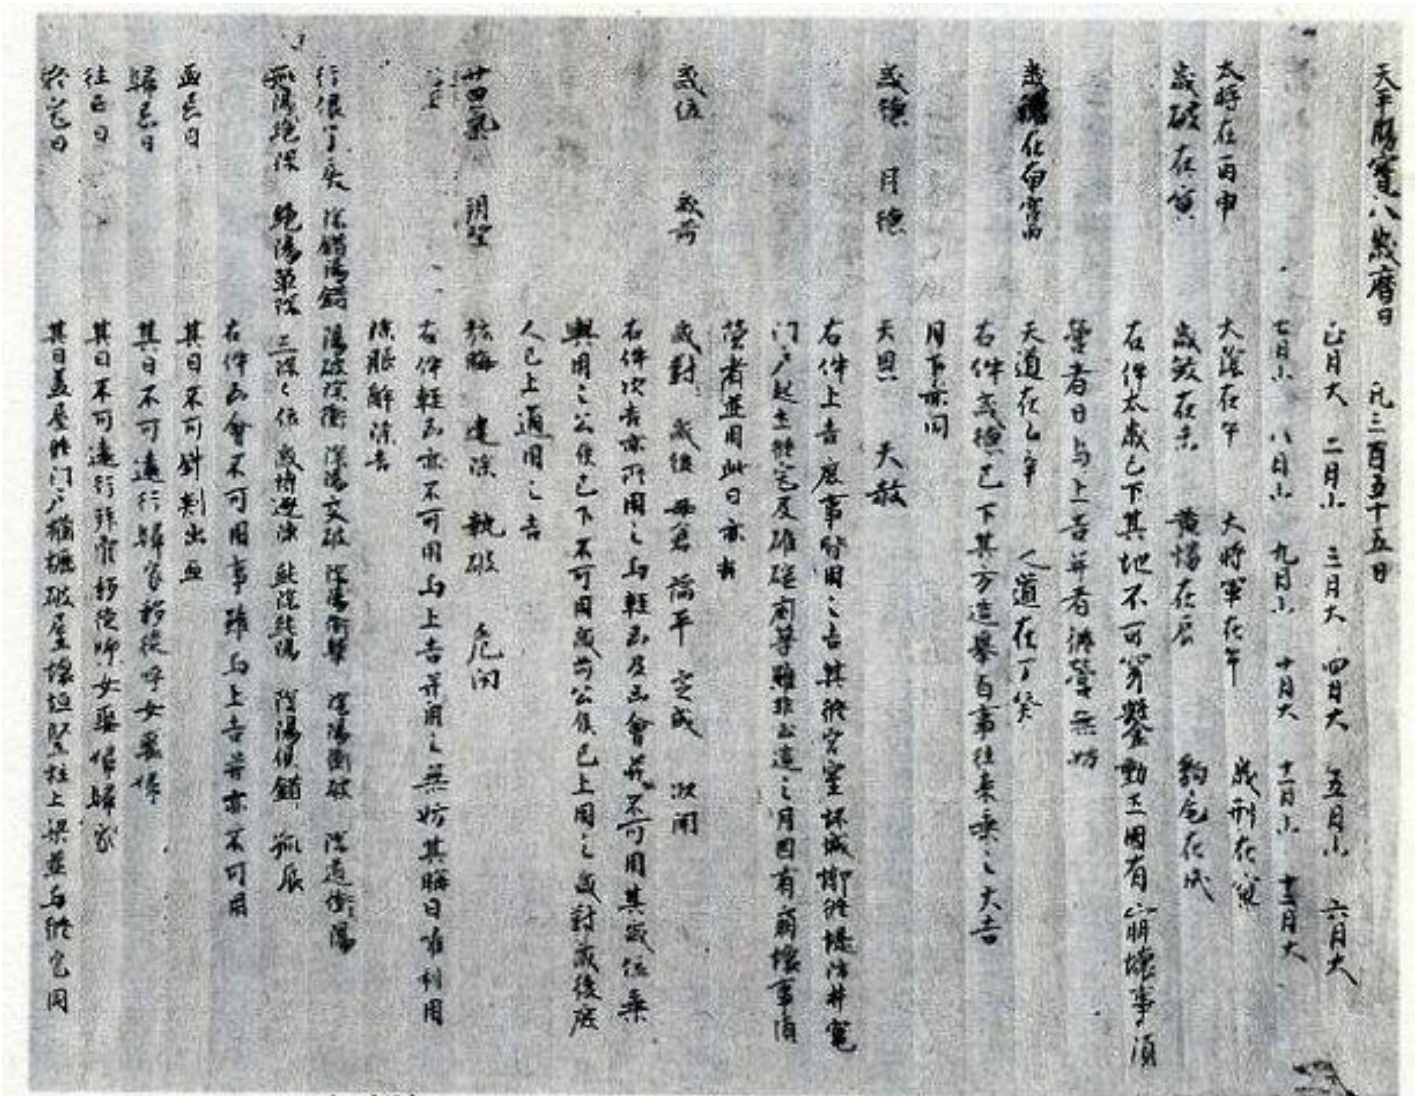 天平勝寶八歳暦日 凡三百五十五日
正月大 二月小 三月大 四月大 五月小 六月大
七月小 八月小 九月小 十月大 十一月小 十二月大
太歳在丙申 大陰在午 大将軍在午 歳刑在寅
歳破在寅 歳殺在未 黄幡在辰 豹尾在戌
右件太歳已下其地不可穿鑿動土因有崩壊事須
營者日与上吉并者修營無妨
歳德在南宮丙 天道在乙辛 人道在丁癸
右件歳德已下其方造擧百事往来乗之大吉
月下亦同
歳德 月德 天恩 天赦
右件上吉庶事並用之吉其修宮室坏城墎修堤防井竈
門戸起土修宅及碓磑廁等雖非公造之月因有崩壊事須
營者並用此日亦吉
歳位 歳前 歳對 歳後 母倉 満平 定成 收開
右件次吉亦所用之与輕凶及凶會并不可用其歳位乗
輿用之公侯已下不可用歳前公侯已上用之歳對歳後庶
人已上通用之吉
廿四氣 朔望 弦晦 建除 執破 危閇
右件輕凶亦不可用与上吉并用之無妨其晦日唯利用
除服解除吉
行佷了戻 陰錯陽錯 陽破陰衝 陰陽交破 陰陽衝撃 陰陽衝破 陰道衝陽
孤陽絶陰 絶陽 三陰 歳博逐陣 純陰純陽 陰陽倶錯 孤辰
右件凶會不可用事雖与上吉并亦不可用
血忌日 其日不可針刺出血
歸忌日 其日不可遠行歸家移徙呼女娶婦
往亡日 其日不可遠行拜官移徙呼女娶婦歸家
其日蓋屋修門戸 破屋壊垣竪柱上梁並与修宅同